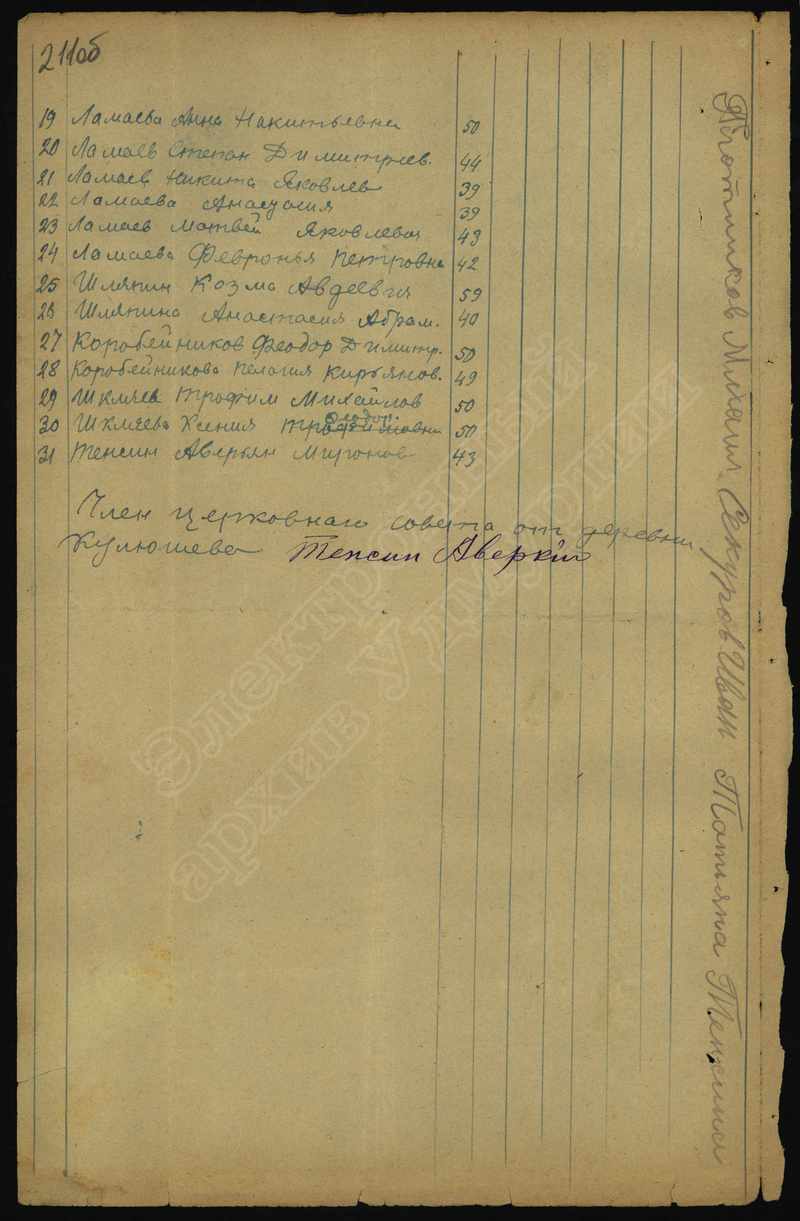 211об
19 Ламаева Анна Никитьевна 50
20 Ламаев Степан Димитриев. 44
21 Ламаев Никита Яковлев 39
22 Ламаева Анастасия 39
23 Ламаев Матвей Яковлевая 43
24 Ламаева Февронья Петровна 42
25 Шляпин Козма Авдеевия 59
26 Шляпина Анастасия Абрам. 40
27 Коробейников Феодор Димитр. 50
28 Коробейникова Пелагия Кирьянов. 49
29 Шкляев Трофим Михайлов 50
Феодор.
30 Шкляева Ксения Трофимовна 50
31 Тенсин Аверьян Миронов 43
Член церковнаго совета от деревни
Кулюшева Тенсин Аверкий
Плотников Михаил Секуров Иван Татьяна
Электронный
архив Удмуртии